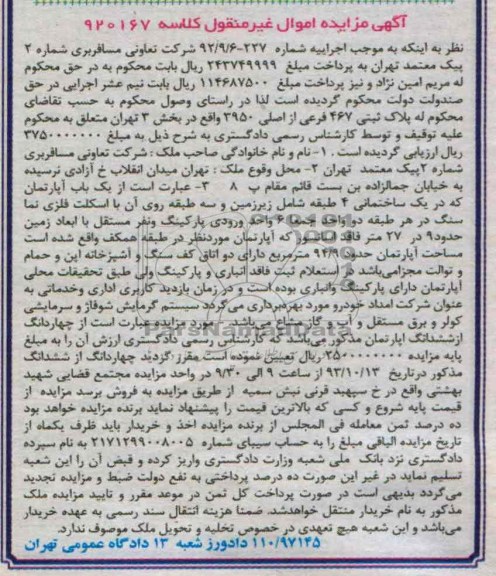 آگهی مزایده اموال غیرمنقول کلاسه ۹۲۰۱۶۷
نظر به اینکه به موجب اجراییه شماره ۲۲۷-۹۲/۹/۶ شرکت تعاونی مسافربری شماره ۲
پیک معتمد تهران به پرداخت مبلغ ۲۴۳۷۴۹۹۹۹ ریال بابت محکوم به در حق محکوم
له مریم امین نژاد و نیز پرداخت مبلغ ۱۱۴۶۸۷۵۰۰ ریال بابت نیم عشر اجرایی در حق
صندولت دولت محکوم گردیده است لذا در راستای وصول محکوم به حسب تقاضای
محکوم له پلاک ثبتی ۴۶۷ فرعی از اصلی ۳۹۵۰ واقع در بخش ۳ تهران متعلق به محکوم
علیه توقیف و توسط کارشناس رسمی دادگستری به شرح ذیل به مبلغ ۳۷۵۰۰۰۰۰۰۰
ریال ارزیابی گردیده است . ۱- نام و نام خانوادگی صاحب ملک : شرکت تعاونی مسافربری
شماره ۲ پیک معتمد تهران ۲- محل وقوع ملک : تهران میدان انقلاب خ آزادی نرسیده
به خیابان جمالزاده بن بست قائم مقام پ ۸ ۳- عبارت است از یک باب آپارتمان
که در یک ساختمانی ۴ طبقه که شامل زیرزمین و سه طبقه روی آن با اسکلت فلزی نما
سنگ در هر طبقه دو واحد جمعا ۶ واحد ورودی پارکینگ ونفر مستقل با ابعاد زمین
حدود ۹ در ۲۷ متر فاقد آسانسور که آپارتمان موردنظر در طبقه همکف واقع شده است
مساحت آپارتمان حدود ۹۴/۹ مترمربع دارای دو اتاق کف سنگ و آشپزخانه اپن و حمام
و توالت مجزا می‌باشد در استعلام ثبت فاقد انباری و پارکینگ ولی طبق تحقیقات محلی
آپارتمان دارای پارکینگ وانباری بوده است و در زمان بازدید کاربری اداری وخدماتی به
عنوان شرکت امداد خودرو مورد بهره‌برداری می‌گردد سیستم گرمایش شوفاژ و سرمایشی
کولر و برق مستقل و آب و گاز مشاع می‌باشد . مورد مزایده عبارت است از چهاردانگ
ازششدانگ اپارتمان مذکور می‌باشد که کارشناس رسمی دادگستری ارزش آن را به مبلغ
پایه مزایده ۲۵۰۰۰۰۰۰۰۰ ریال تعیین نموده است مقرر گردید چهاردانگ از ششدانگ
مذکور درتاریخ ۹۳/۱۰/۱۳ از ساعت ۹ الی ۹/۳۰ در واحد مزایده مجتمع قضایی شهید
بهشتی واقع در خ سپهبد قرنی نبش سمیه از طریق مزایده به فروش برسد مزایده از
قیمت پایه شروع و کسی که بالاترین قیمت را پیشنهاد نماید برنده مزایده خواهد بود
ده درصد ثمن معامله فی المجلس از برنده مزایده اخذ و خریدار باید ظرف یکماه از
تاریخ مزایده الباقی مبلغ را به حساب سیبای شماره ۲۱۷۱۲۹۹۰۰۸۰۰۵ به نام سپرده
دادگستری نزد بانک ملی شعبه وزارت دادگستری واریز کرده و قبض آن را این شعبه
تسلیم نماید در غیر این صورت ده درصد پرداختی به نفع دولت ضبط و مزایده تجدید
می‌گردد بدیهی است در صورت پرداخت کل ثمن در موعد مقرر و تایید مزایده ملک
مذکور به نام خریدار منتقل خواهدشد. ضمنا هزینه انتقال سند رسمی به عهده خریدار
می‌باشد و این شعبه هیچ تعهدی در خصوص تخلیه و تحویل ملک موصوف ندارد.
۱۱۰/۹۷۱۴۵ دادورز شعبه ۱۳ دادگاه عمومی تهران